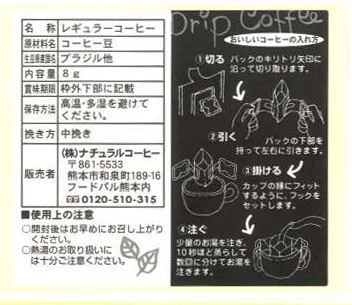 名称 レギュラーコーヒー
原材料名 コーヒー豆
生豆原産国名 ブラジル他
内容量 8g
賞味期限 枠外下部に記載
保存方法 高温・多湿を避けて
ください。
挽き方 中挽き
販売者 (株)ナチュラルコーヒー
〒861-5533
熊本市和泉町189-16
フードパル熊本内
0120-510-315
■使用上の注意
○開封後はお早めにお召し上がり
ください。
○熱湯のお取り扱いに
は十分ご注意ください。
Drip Coffee
おいしいコーヒーの入れ方
①切る
パックのキリトリ矢印に
沿って切り取ります。
②引く
パックの下部を
持って左右に引きます。
③掛ける
カップの縁にフィット
するように、フックを
セットします。
④注ぐ
少量のお湯を注ぎ、
10秒ほど蒸らして
数回に分けてお湯を
注ぎます。